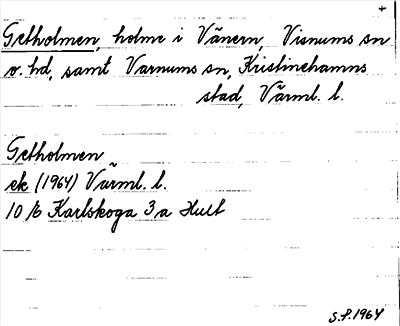 +
Getholmen, holme i Vänern, Visnums sn
o. hd, samt Varnums sn, Kristinehamns
stad, Värml. l.
Getholmen
ek (1964) Värml. l.
10 /6 Karlskoga 3 a Hult
S.P. 1964